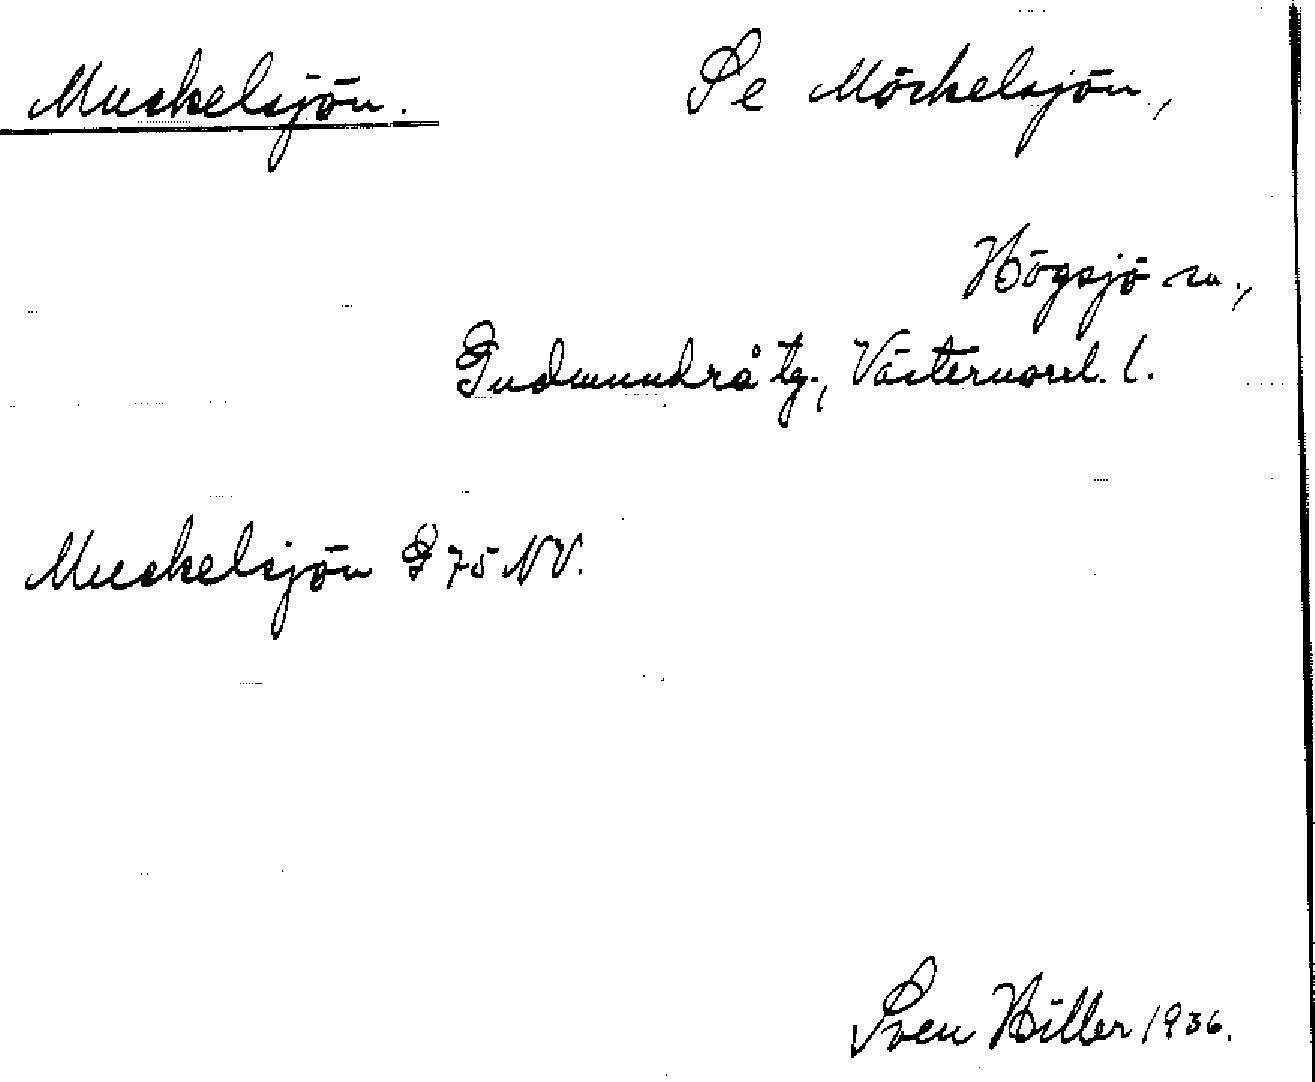 Muckelsjön. Se Möckelsjön,
Högsjö sn.,
Gudmundrå tg., Västernorrl. l.
Muckelsjön G 75 NV.
Sven Hiller 1936.